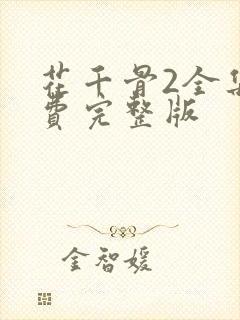 花千骨2全集
費完整版
金智媛